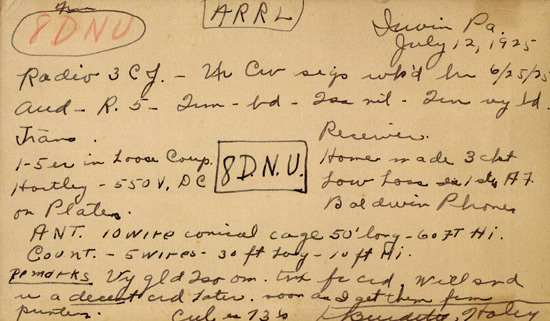 fm
8DNU
ARRL
Irwin Pa.
July 12, 1925
Radio 3CJ. - Ur Cw sigs wk'd hr 6/25/25
Aud - R. 5 - Qrm - bd - Qss nil - Qrn vy bd.
Trans.
1-5er in Loose Coup.
Hartley - 550 V. DC
on Plates.
8D.N.U.
Receiver.
Home made 3 ckt
Low Loss 1 stg AF
Baldwin Phones
ANT. 10 wire conical cage 50' long - 60 FT Hi.
Count. - 5 wires - 30 ft long - 10 ft Hi.
Remarks Vy gld Qso om. tnx fr crd, Will snd
u a decent crd later. soon as I get them fm
printers. Cul es 73s